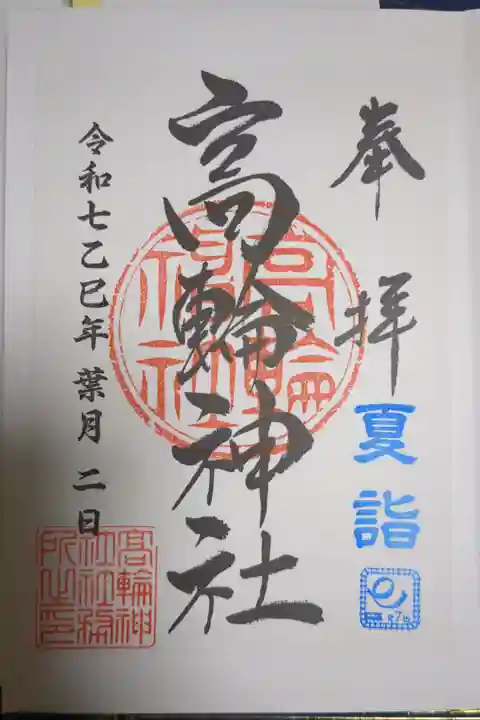 奉拝
夏詣
高輪神社
高輪神社
令和七乙巳年 葉月 二日
高輪神
社社務
所之印